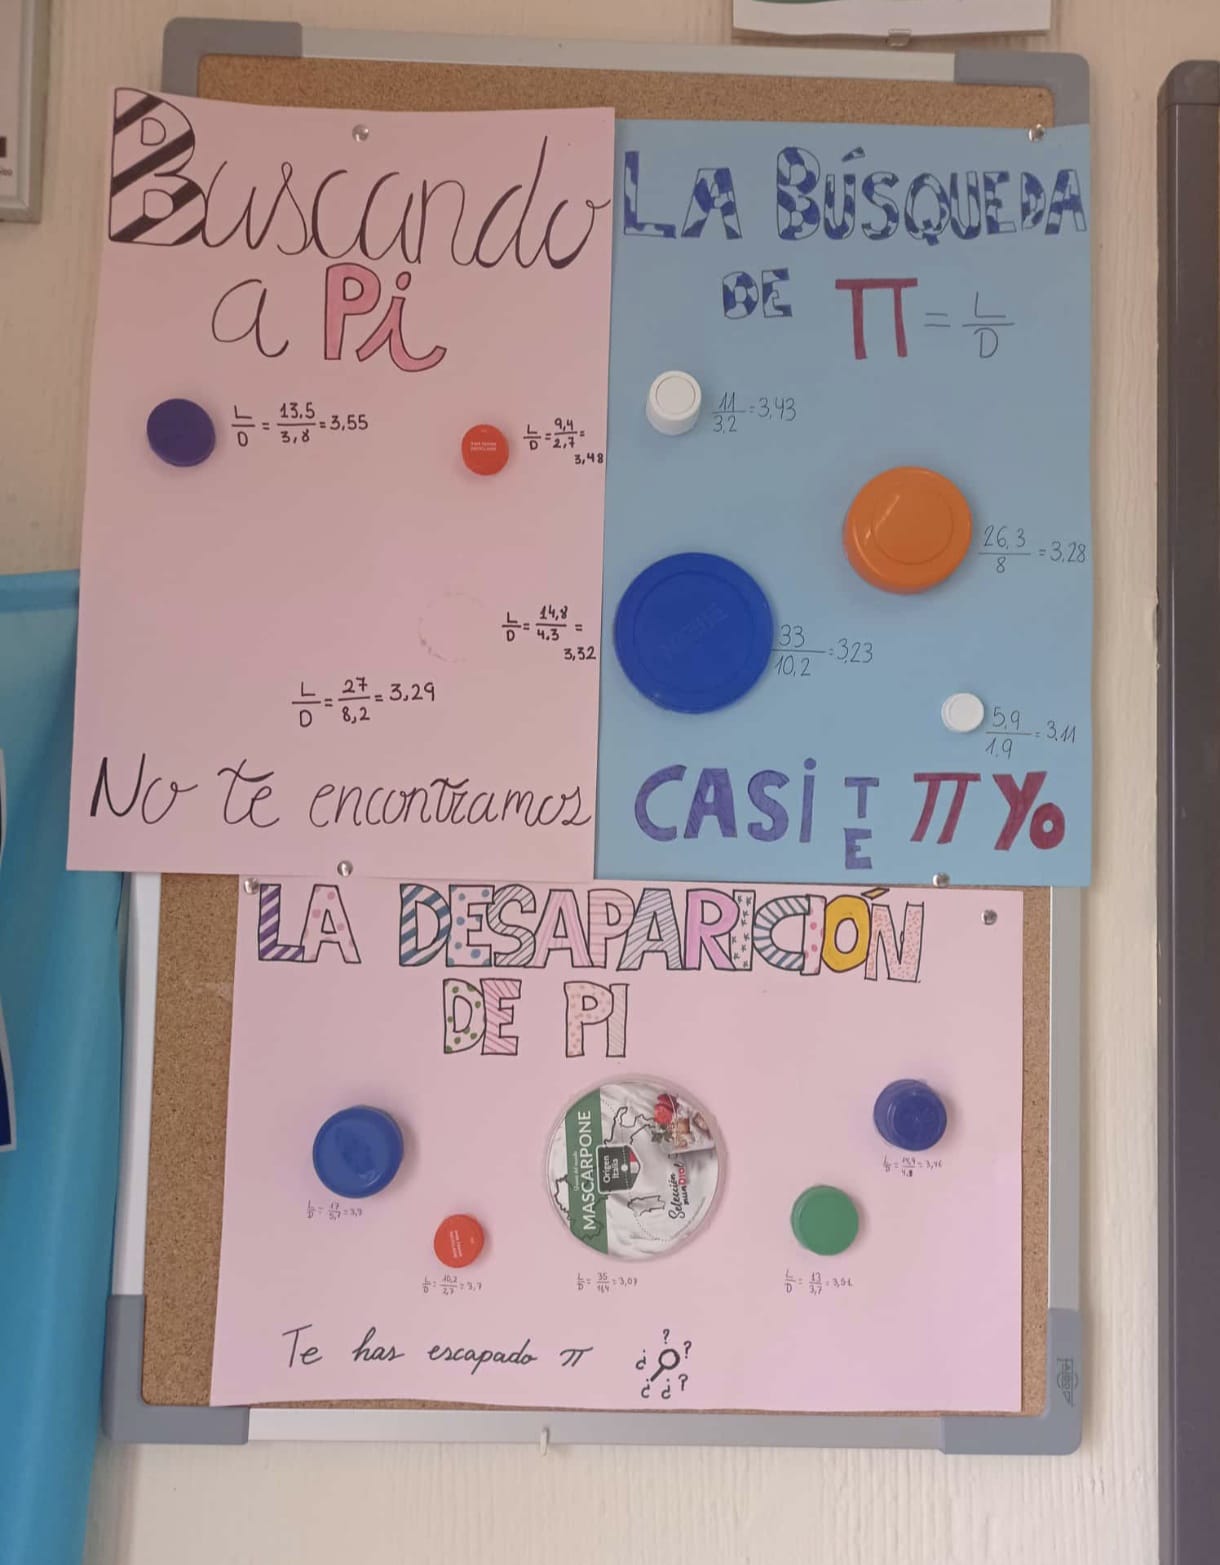 Buscando
a Pi
L/D = 13,5/3,8 = 3,55
L/D = 9,4/2,7 =
3,48
L/D = 14,8/4.3 =
3,32
L/D = 27/8,2 = 3,29
No te encontramos
LA BÚSQUEDA
DE π = L/D
11/3,2 = 3,43
26,3/8 = 3,28
33/10,2 = 3,23
5,9/1,9 = 3,11
CASI TE π YO
LA DESAPARICIÓN
DE PI
MASCARPONE
Origen
Italia
Selección
munDial
L/D = 14,9/4.3 = 3,46
L/D = 17/5,7 = 3,3
L/D = 10,2/2,7 = 3,7
L/D = 35/11,4 = 3,07
L/D = 13/3,7 = 3,51
Te has escapado π
? ¿ ? ¿ ¿ ?